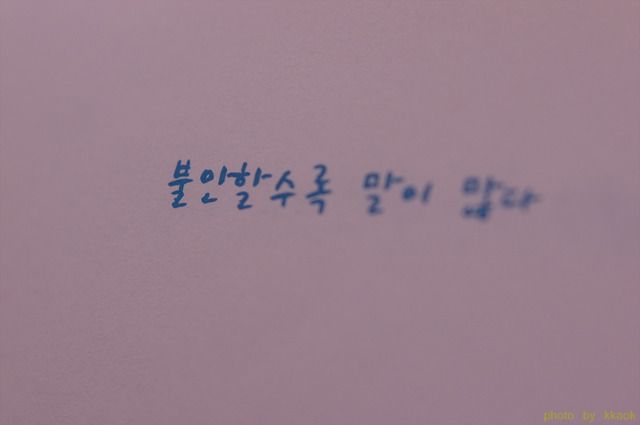 불안할수록 말이 많다
photo by kkaok